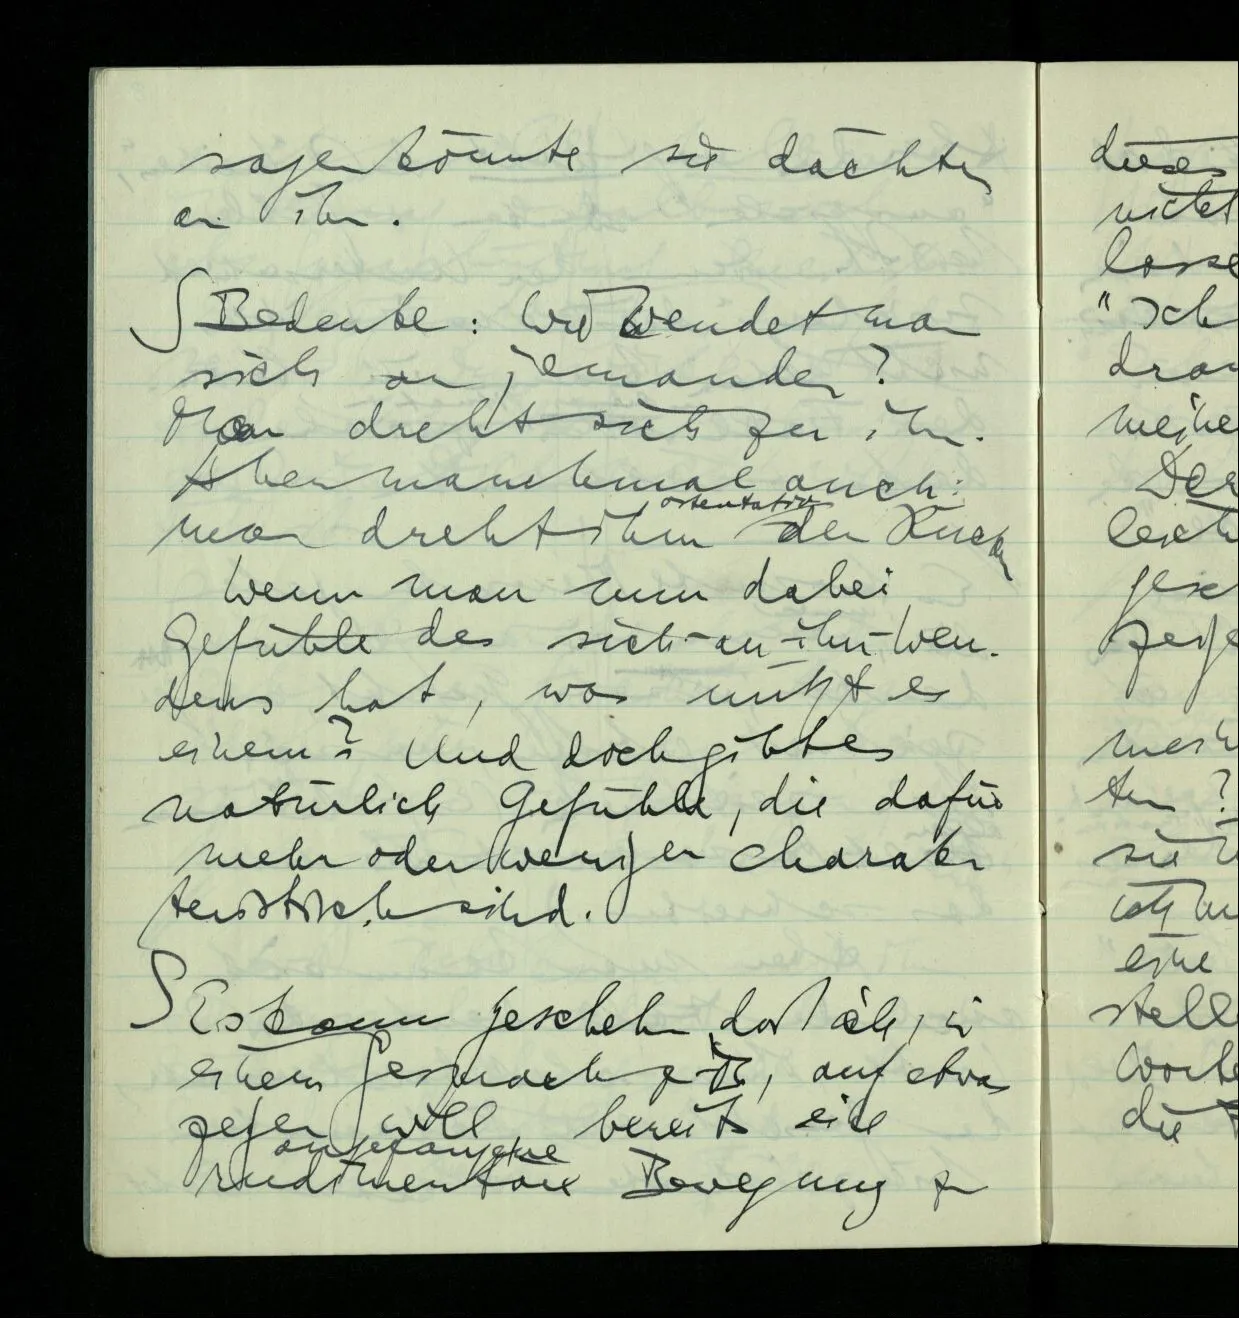 sagen könnte sie dächten
an ihn.
∫ Bedenke: Wie wendet man
sich an jemanden?
Man dreht sich zu ihm.
Aber manchmal auch:
ostentativ
man dreht ihm den Rücken
Wenn man nun dabei
Gefühle des sich-an-ihn-Wen-
dens hat, was nützt es
einem? Und doch gibt es
natürlich Gefühle, die dafür
mehr oder weniger charakte
ristisch sind.
∫ Es kann geschehen, daß ich, in
einem Gespräch z. B., auf etwas
zeigen will bereits eine
angefangene
rudimentäre Bewegung zu
dieses
nicht
lasse
"Ich
dran
meine
Der
leich
gesch
zeige
mein
ten?
sie
ich
eine
stell
Worte
die